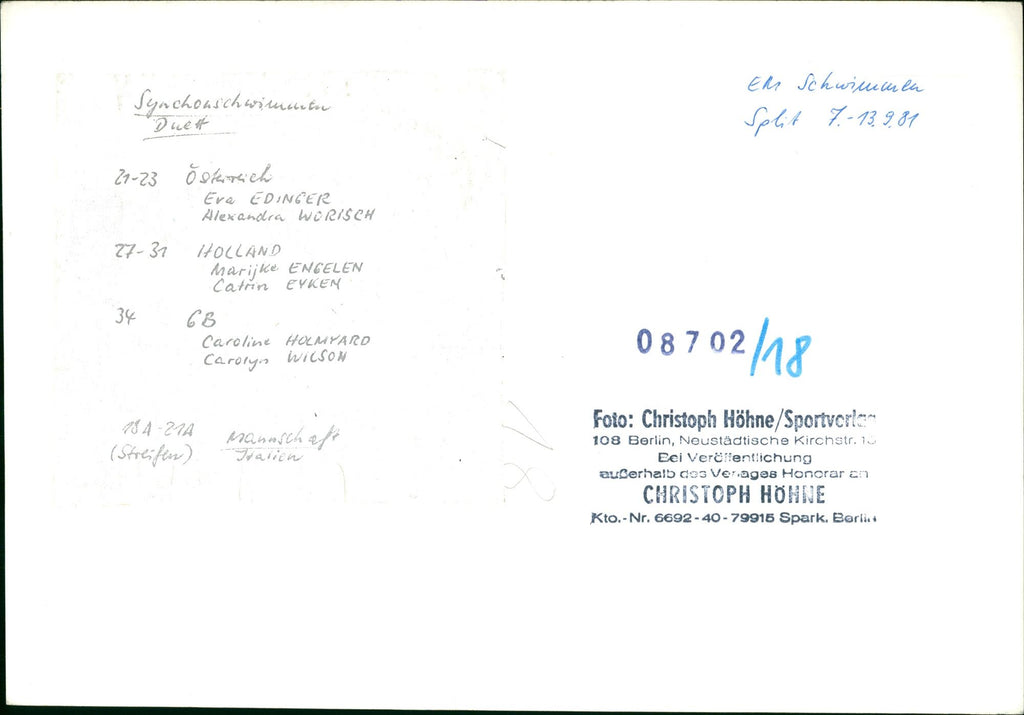 Synchonschwimmen
Duett
21-23 Österreich
Eva EDINGER
Alexandra WÖRISCH
27-31 HOLLAND
Marijke ENGELEN
Catrin EYKEN
34 GB
Caroline HOLMYARD
Carolyn WILSON
18A-21A Mannschaft
(Streifen) Italien
EM Schwimmen
Split 7.-13.9.81
08702/18
Foto: Christoph Höhne/Sportverlag
108 Berlin, Neustädtische Kirchstr. 15
Bei Veröffentlichung
außerhalb des Verlages Honorar an
CHRISTOPH HÖHNE
Kto.-Nr. 6692-40-79915 Spark. Berlin
18